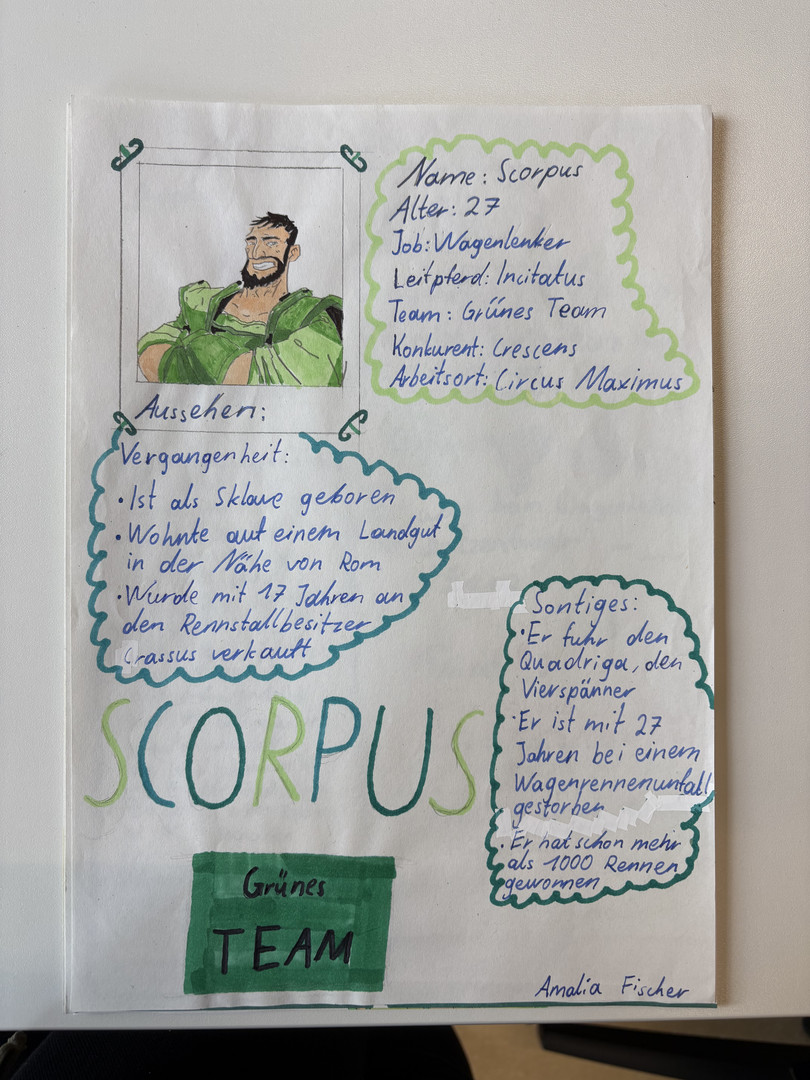 Name: Scorpus
Alter: 27
Job: Wagenlenker
Leitpferd: Incitatus
Team: Grünes Team
Konkurent: Crescens
Arbeitsort: Circus Maximus
Aussehen:
Vergangenheit:
• Ist als Sklave geboren
• Wohnte auf einem Landgut
in der Nähe von Rom
• Wurde mit 17 Jahren an
den Rennstallbesitzer
Crassus verkauft
Sontiges:
• Er fuhr den
Quadriga, den
Vierspänner
• Er ist mit 27
Jahren bei einem
Wagenrennenunfall
gestorben
• Er hat schon mehr
als 1000 Rennen
gewonnen
SCORPUS
Grünes
TEAM
Amalia Fischer